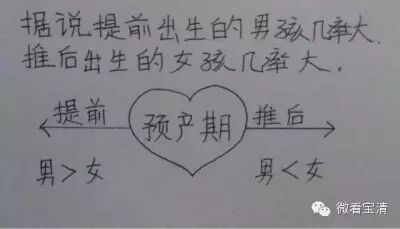 据说提前出生的男孩几率大.
推后出生的女孩几率大.
提前
预产期
推后
男>女
男<女
微看宝清